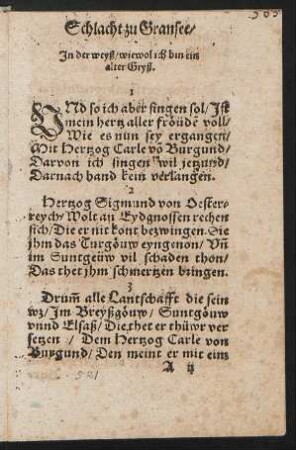 Schlacht zu Gransee/
In der weyß/ wiewol ich bin ein
alter Gryß.
1
VNd so ich aber singen sol/ Ist
mein hertz aller fröüdẽ voll/
Wie es nun sey ergangen/
Mit Hertzog Carle võ Burgund/
Darvon ich singen wil jetzund/
Darnach hand kein verlangen.
2
Hertzog Sigmund von Oester-
reych/ Wolt an Eydgnossen rechen
sich/ Die er nit kont bezwingen. Sie
ihm das Turgöuw eyngenon/ Uñ
im Suntgeüw vil schaden thon/
Das thet jhm schmertzen bringen.
3
Drum̃ alle Lantschafft die sein
wz/ Im Breyßgöuw/ Suntgöuw
vnnd Elsaß/ Die thet er thüwr ver
setzen/ Dem Hertzog Carle von
Burgund/ Den meint er mit eim
A ij
521